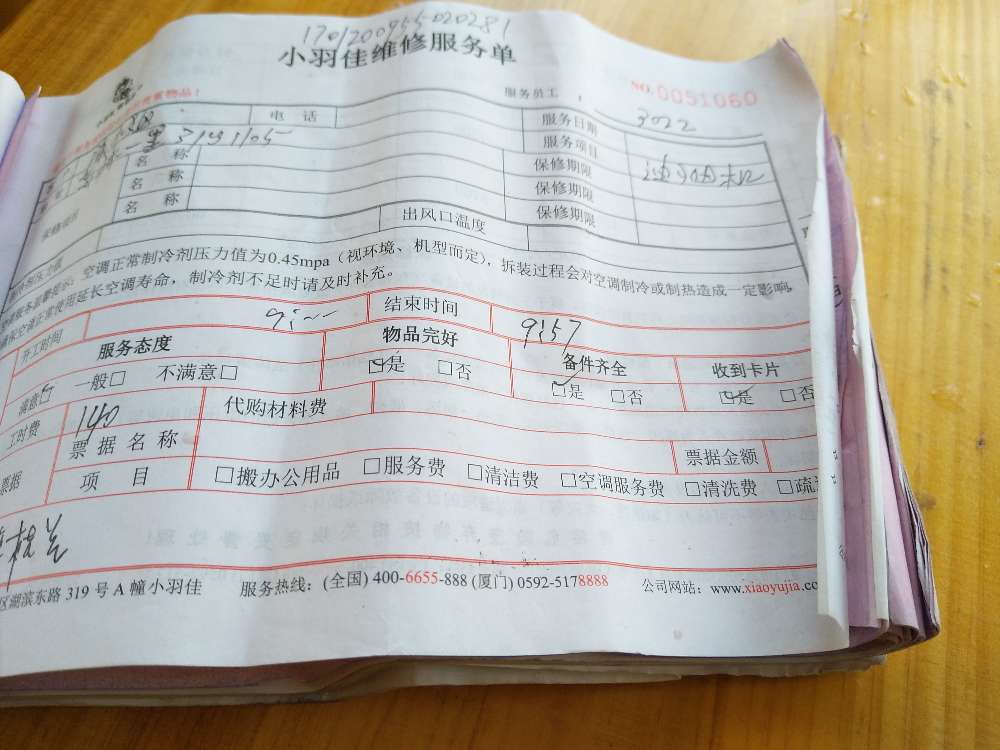 1701200955020281
小羽佳维修服务单
服务员工
NO.0051060
电 话
服务日期
3022
服务项目
名 称
保修期限
名 称
保修期限
名 称
保修期限
出风口温度
空调正常制冷剂压力值为0.45mpa（视环境、机型而定），拆装过程会对空调制冷或制热造成一定影响，
使用延长空调寿命，制冷剂不足时请及时补充。
开工时间
结束时间
9:57
服务态度
物品完好
备件齐全
收到卡片
满意□ 一般□ 不满意□
□是 □否
□是 □否
□是 □否
工时费
140
代购材料费
票据
票 据 名 称
票据金额
项 目
□搬办公用品 □服务费 □清洁费 □空调服务费 □清洗费 □疏
区湖滨东路 319 号 A 幢小羽佳
服务热线：(全国) 400-6655-888 (厦门) 0592-5178888
公司网站：www.xiaoyujia.cc